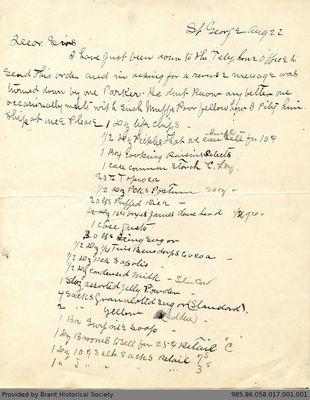 St George Aug 22
Dear Sirs
I have just been down to the Telephone Office to
Send this order and in asking for a reverse message was
turned down by one Parker. He dont know any better we
occasionally meet with such Muffs Poor fellow how I Pity him
Ship at once Please 1 Dog chips -
1/2 Dog that we can sell for 10¢
1 Box Cooking Raisins Selects
1 case common Starch
20 lb Tapioca
1/2 Dog Pkgs Postum
20 lbs Puffed Rice -
James dome lead
1 case Gusto
30 lbs Icing Sugar
1/2 Dog 1/4 Tins Bensdorps Cocoa -
1/2 Dog Pck Sapolio -
1/2 Dog Condensed Milk -
1 Dog assorted Jelly Powder -
4 Sacks Granulated Sugar (Standard).
2 " Yellow
1 Box Surprise Soap -
1 Dog Brooms to Sell for 25¢ Retail "C"
1 Dog 10¢ Salt Sacks Retail
1 " 5 " " "
Provided by Brant Historical Society
985.86.058.017.001.001